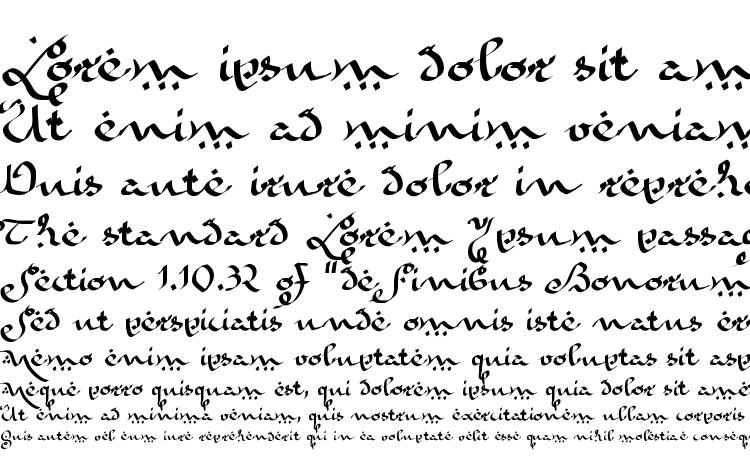 Lorem ipsum dolor sit am
Ut enim ad minim veniam
Duis aute irure dolor in reprehe
The standard Lorem Ipsum passag
Section 1.10.32 of "de Finibus Bonorum
Sed ut perspiciatis unde omnis iste natus er
Nemo enim ipsam voluptatem quia voluptas sit asp
Neque porro quisquam est, qui dolorem ipsum quia dolor sit ame
Ut enim ad minima veniam, quis nostrum exercitationem ullam corporis
Quis autem vel eum iure reprehenderit qui in ea voluptate velit esse quam nihil molestiae conseq